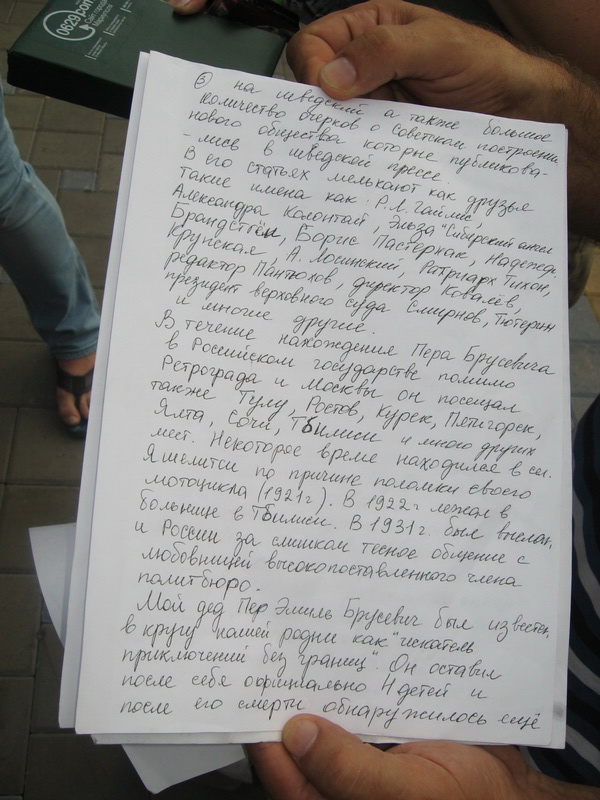 0629.com
Сайт города
Мариуполя
⑤ на шведский а также большое
количество очерков о Советском построении
нового общества которые публикова-
-лись в шведской прессе.
В его статьях мелькают как друзья
такие имена как: Р.Л. Гаймс,
Александра Колонтай, Эльза "Сибирский ангел
Брандстём, Борис Пастернак, Надежда
Крупская, А. Лосинский, Патриарх Тихон,
редактор Пантюхов, директор Ковалёв,
президент верховного суда Смирнов, Тютерин
и многие другие.
В течение нахождения Пера Брусевича
в Российском государстве помимо
Петрограда и Москвы он посещал
также Тулу, Ростов, Курск, Пятигорск,
Ялта, Сочи, Тбилиси и много других
мест. Некоторое время находился в сл.
Яшелитси по причине поломки своего
мотоцикла (1921г). В 1922г лежал в
больнице в Тбилиси. В 1931г. был выслан
и России за слишком тесное общение с
любовницей высокопоставленного члена
политбюро.
Мой дед Пер Эмиль Брусевич был известен
в кругу нашей родни как "искатель
приключений без границ". Он оставил
после себя официально 4 детей и
после его смерти обнаружилось ещё